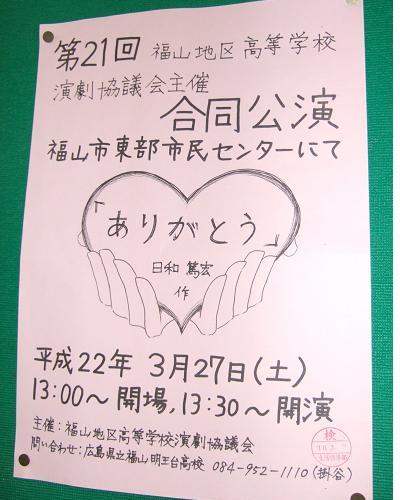 第21回 福山地区高等学校
演劇協議会主催
合同公演
福山市東部市民センターにて
「ありがとう」
日和 篤宏
作
平成22年 3月27日(土)
13:00～ 開場, 13:30～ 開演
主催：福山地区高等学校演劇協議会
問い合わせ：広島県立福山明王台高校 084-952-1110(掛谷)
検